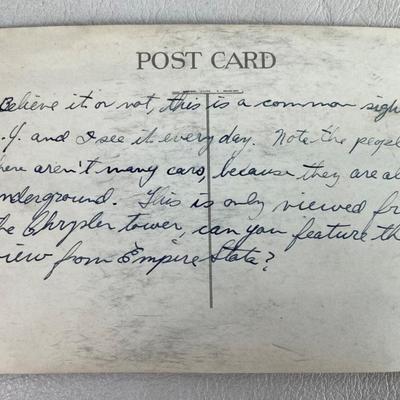 POST CARD
Believe it or not, this is a common sigh
.Y. and I see it every day. Note the peopl
here aren't many cars, because they are al
nderground. This is only viewed fr
the Chrysler tower, can you feature th
view from Empire State?